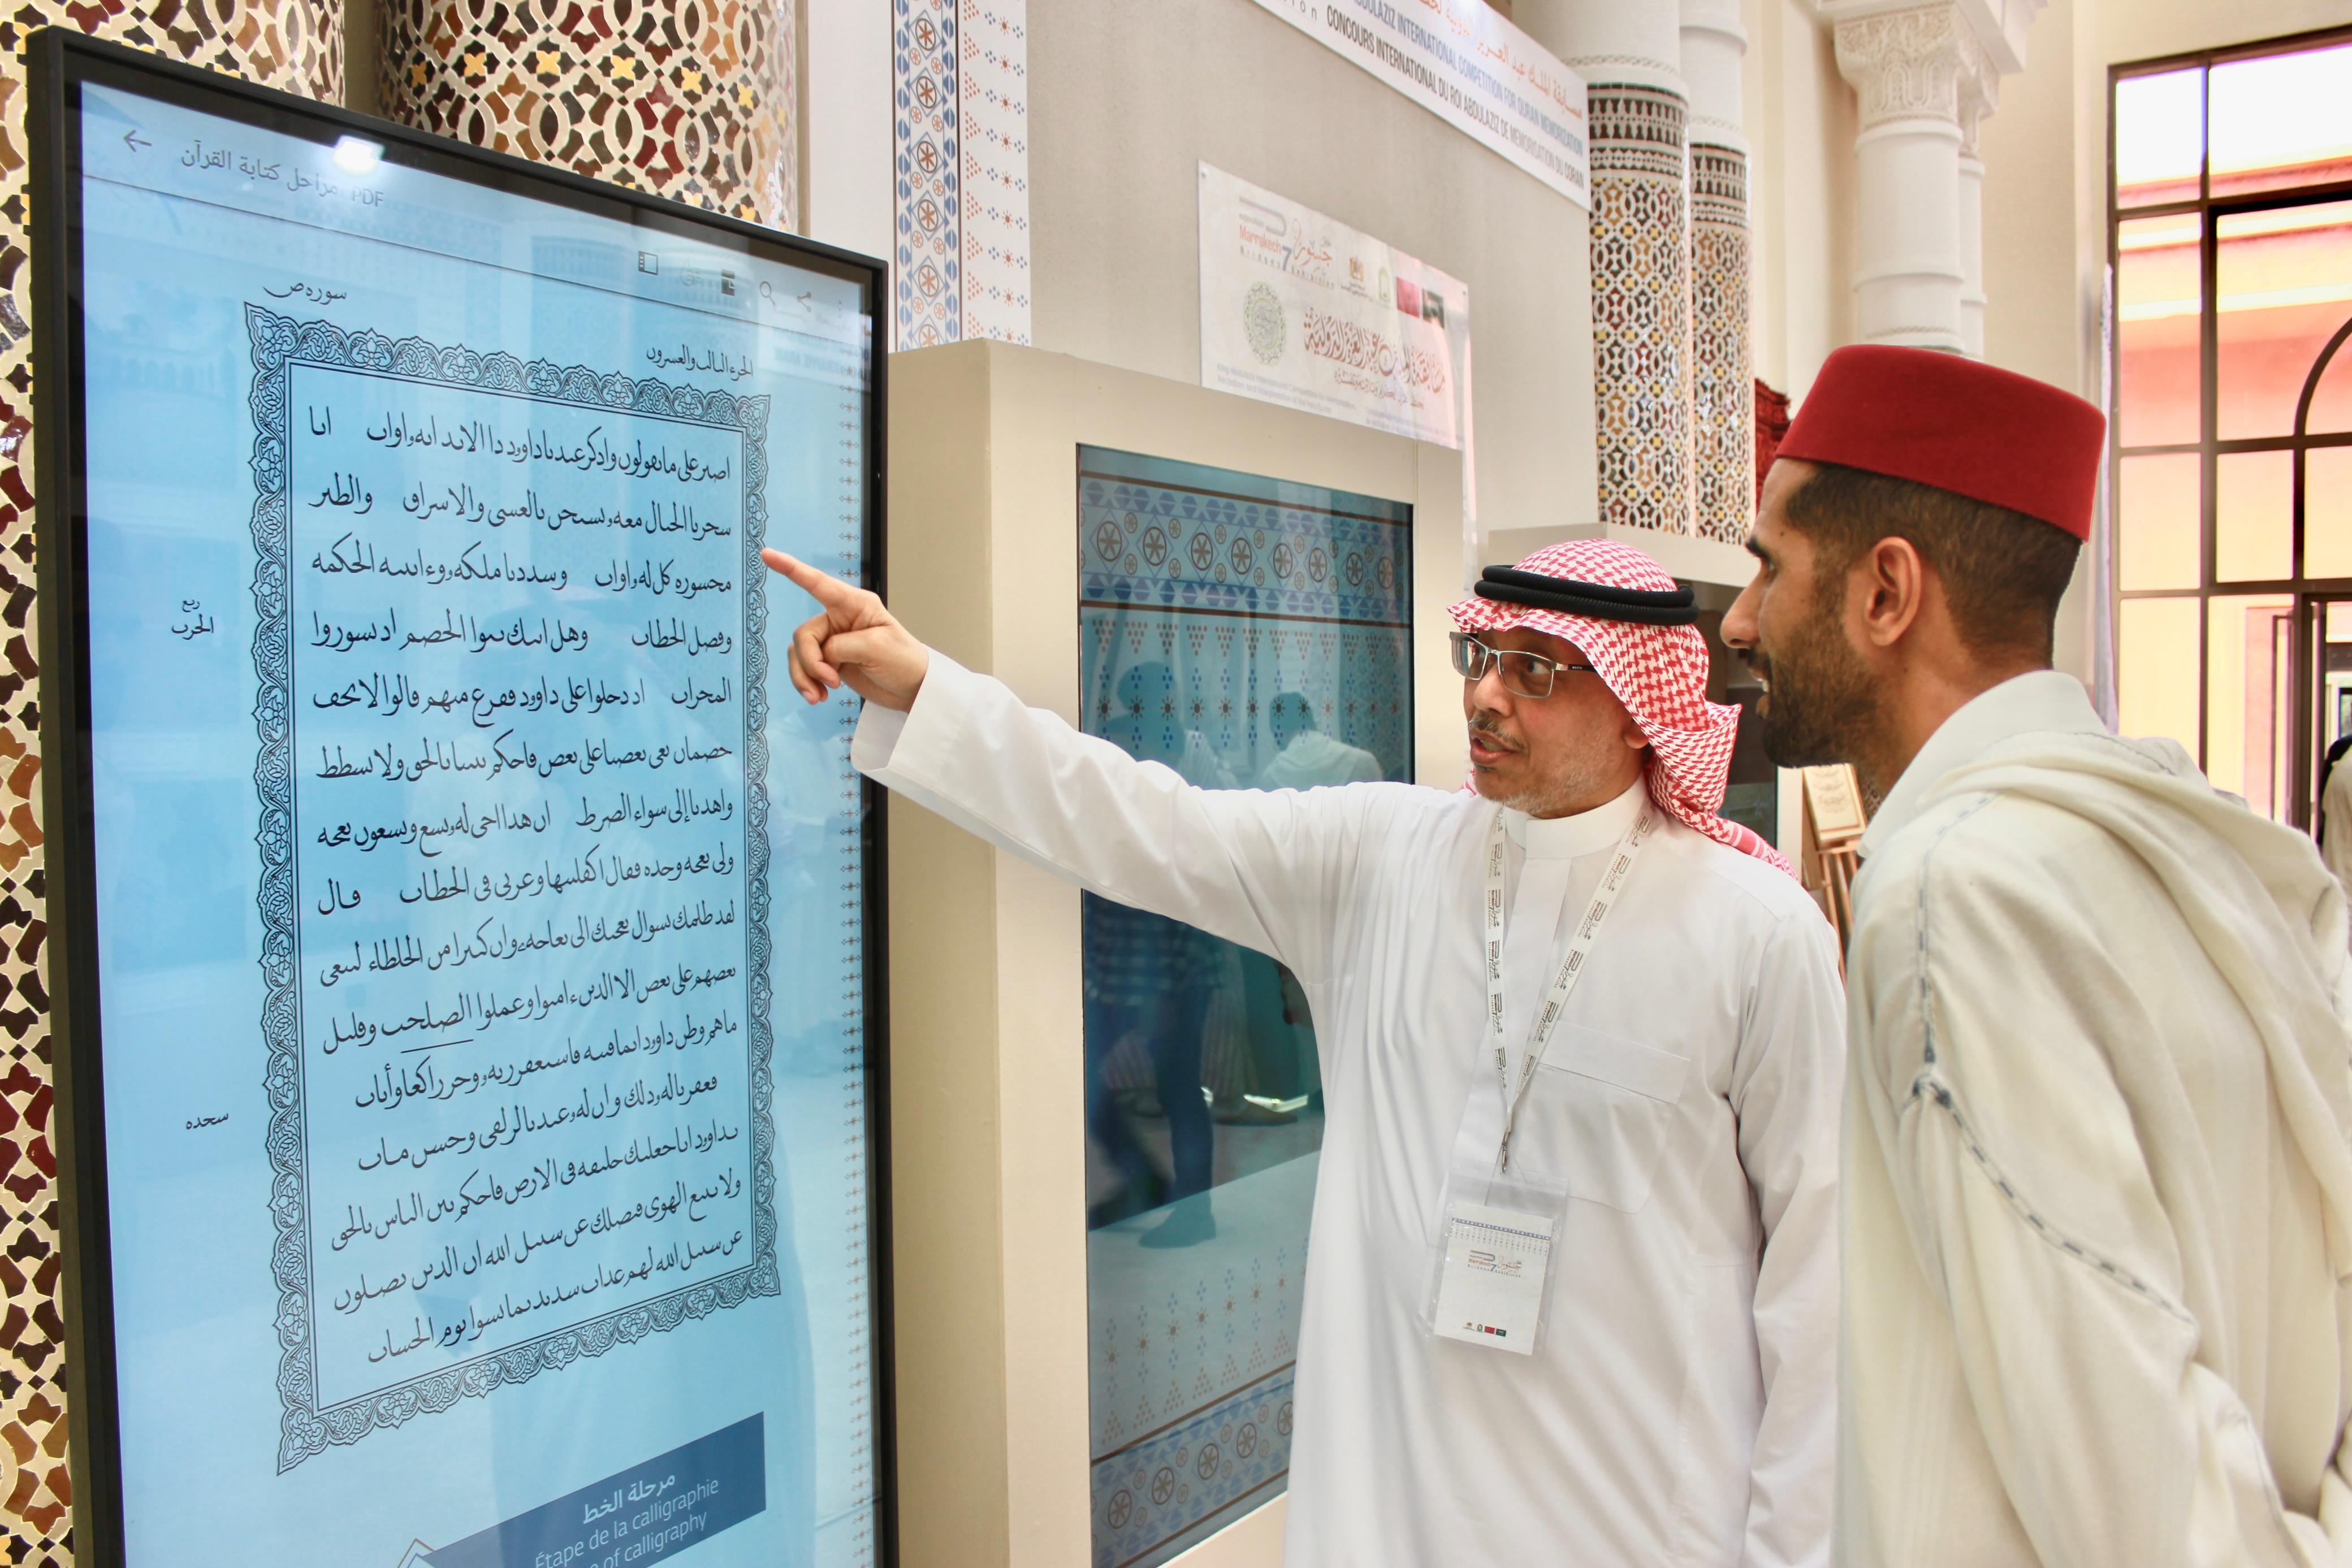 مراحل كتابة القرآن PDF
سورة ص
الجزء الثالث والعشرون
اصبر على ما يقولون واذكر عبدنا داود ذا الايد انه اواب انا
سخرنا الجبال معه يسبحن بالعشي والاشراق والطير
محشورة كل له اواب وشددنا ملكه وءاتينه الحكمة
وفصل الخطاب وهل اتىك نبوا الخصم اذ تسوروا
المحراب اذ دخلوا على داود ففزع منهم قالوا لا تخف
خصمان بغى بعضنا على بعض فاحكم بيننا بالحق ولا تشطط
واهدنا إلى سواء الصرط ان هذا اخى له تسع وتسعون نعجة
ولى نعجة وحدة فقال اكفلنيها وعزنى فى الخطاب قال
لقد ظلمك بسوال نعجتك الى نعاجه وان كثيرا من الخلطاء ليبغى
بعضهم على بعض الا الذين ءامنوا وعملوا الصلحت وقليل
ما هم وظن داود انما فتنه فاستغفر ربه وخر راكعا وأناب
فغفرنا له ذلك وان له عندنا لزلفى وحسن ماب
يداود انا جعلنك خليفة فى الارض فاحكم بين الناس بالحق
ولا تتبع الهوى فيضلك عن سبيل الله ان الذين يضلون
عن سبيل الله لهم عذاب شديد بما نسوا يوم الحساب
ربع
الحزب
سجدة
مرحلة الخط
Étape de la calligraphie
of calligraphy
مسابقة الملك عبد العزيز الدولية
ABDULAZIZ INTERNATIONAL COMPETITION FOR QURAN MEMORIZATION
CONCOURS INTERNATIONAL DU ROI ABDULAZIZ DE MEMORISATION DU CORAN
جسور
Marrakech 7
مسابقة الملك عبد العزيز الدولية
جسور
Marrakech 7